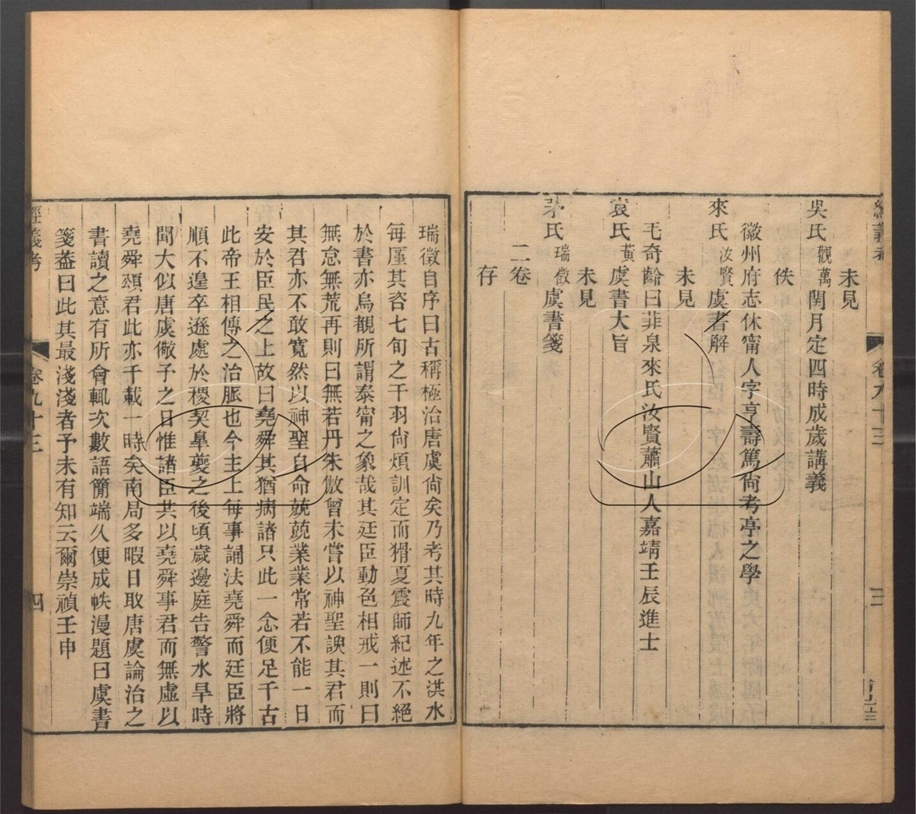 經義考 卷九十三 三
未見
吳氏觀萬閏月定四時成歲講義
佚
徽州府志休甯人字亨壽篤尙考亭之學
來氏汝賢虞書解
未見
毛奇齡曰菲泉來氏汝賢蕭山人嘉靖壬辰進士
袁氏黃虞書大旨
未見
茅氏瑞徵虞書箋
二卷
存
瑞徵自序曰古稱極治唐虞尙矣乃考其時九年之洪水
每厪其咨七旬之干羽尙煩訓定而猾夏震師紀述不絕
於書亦烏覩所謂泰甯之象哉其廷臣動色相戒一則曰
無怠無荒再則曰無若丹朱傲曾未嘗以神聖諛其君而
其君亦不敢寬然以神聖自命兢兢業業常若不能一日
安於臣民之上故曰堯舜其猶病諸只此一念便足千古
此帝王相傳之治脈也今主上每事誦法堯舜而廷臣將
順不遑卒遜處於稷契皋夔之後頃歲邊庭告警水旱時
聞大似唐虞儆予之日惟諸臣共以堯舜事君而無虛以
堯舜頌君此亦千載一時矣南局多暇日取唐虞論治之
書讀之意有所會輒次數語簡端久便成帙漫題曰虞書
箋葢曰此其最淺淺者予未有知云爾崇禎壬申
經義考 卷九十三 四